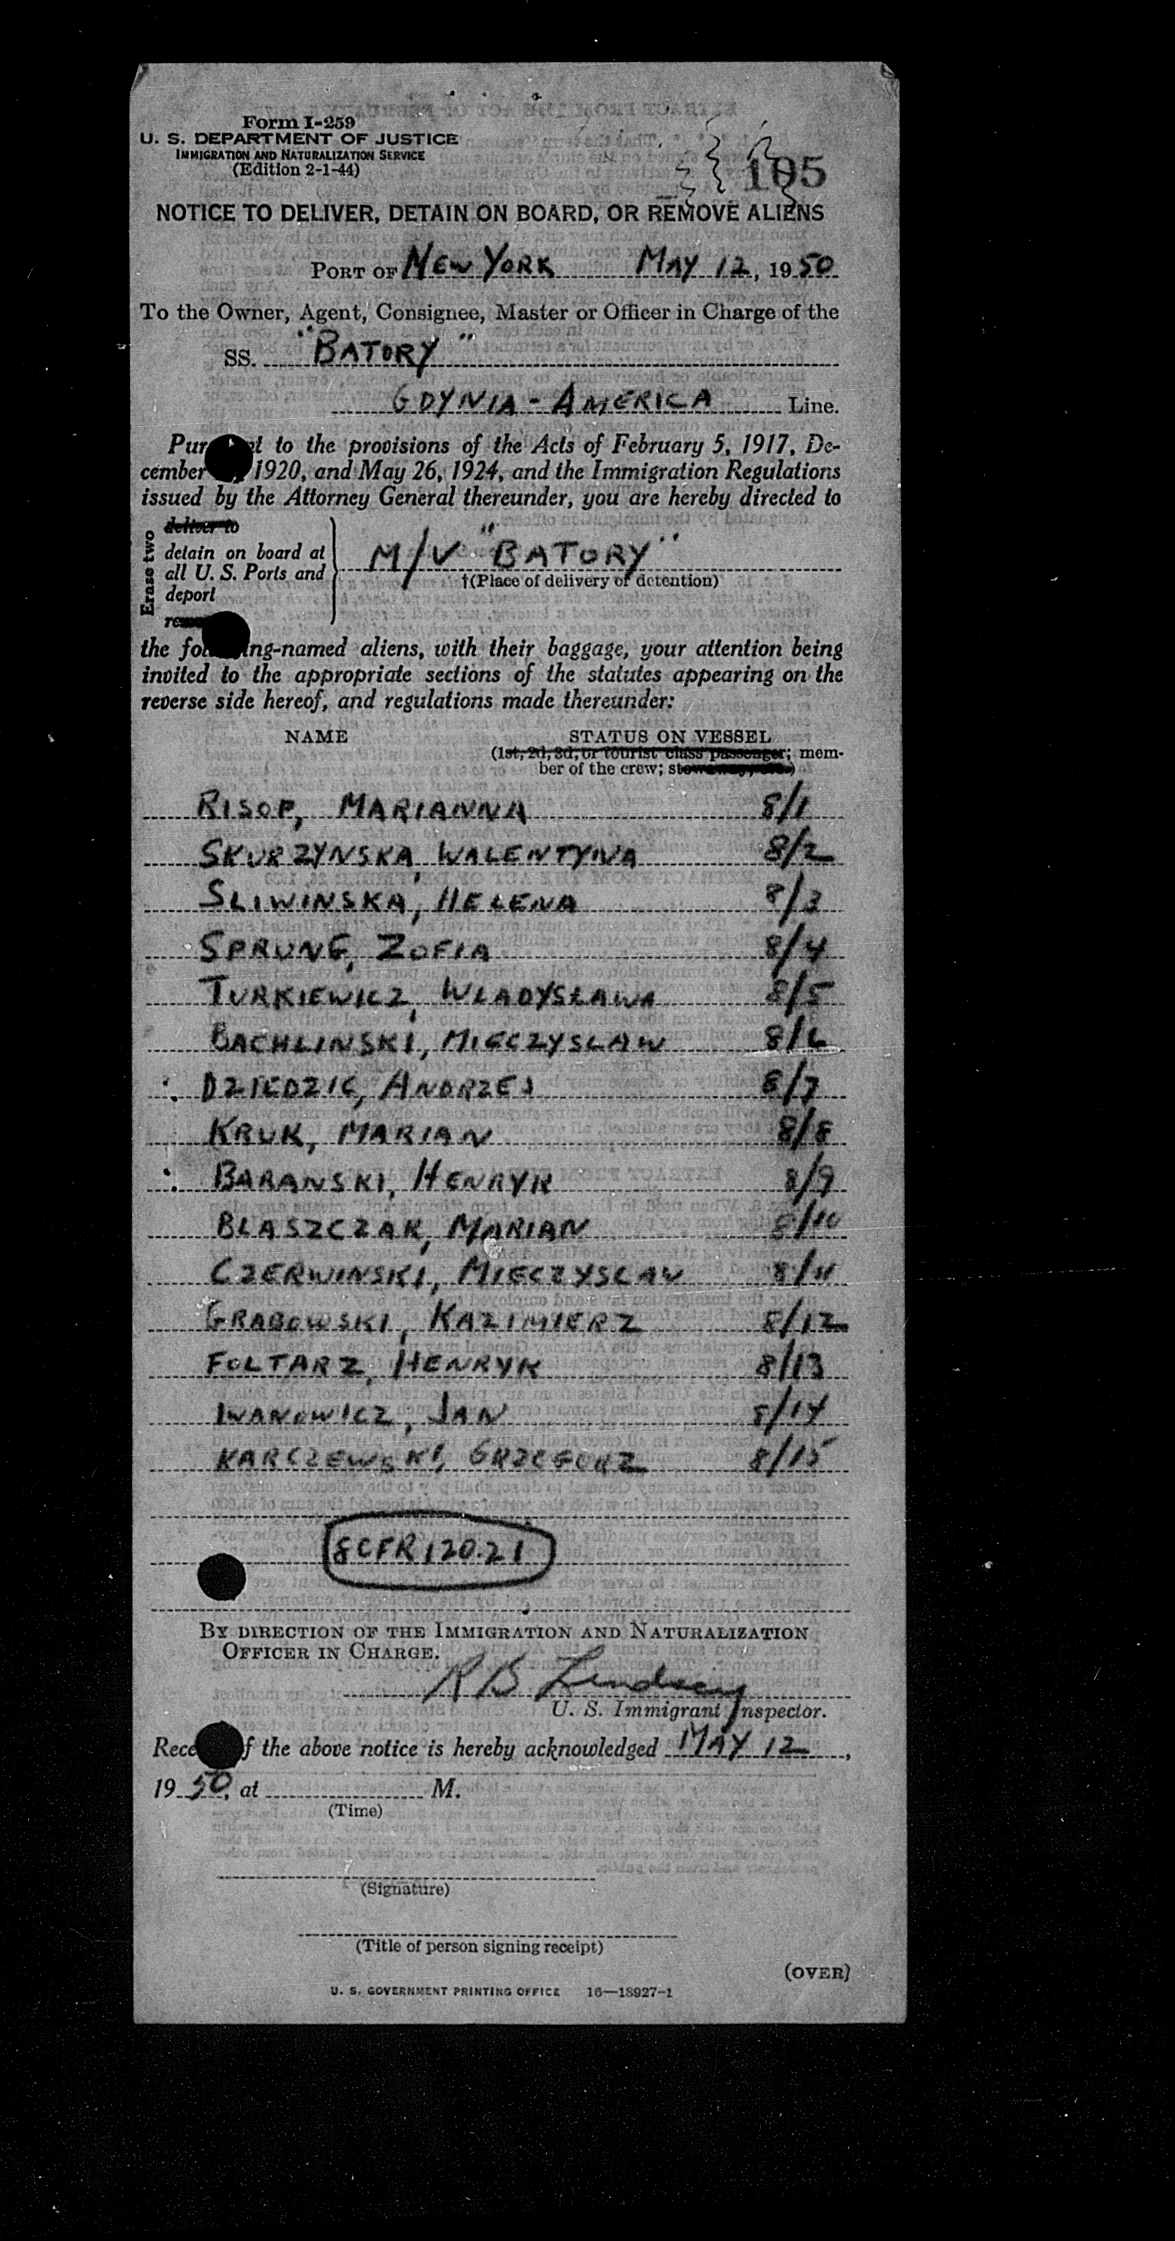 Form I-259
U. S. DEPARTMENT OF JUSTICE
IMMIGRATION AND NATURALIZATION SERVICE
(Edition 2-1-44)
105
NOTICE TO DELIVER, DETAIN ON BOARD, OR REMOVE ALIENS
PORT OF NEW YORK MAY 12, 1950
To the Owner, Agent, Consignee, Master or Officer in Charge of the
SS. "BATORY"
GDYNIA-AMERICA Line.
Pur t to the provisions of the Acts of February 5, 1917, De-
cember 1920, and May 26, 1924, and the Immigration Regulations
issued by the Attorney General thereunder, you are hereby directed to
Erase two
deliver to
detain on board at
all U. S. Ports and
deport
M/V "BATORY"
†(Place of delivery of detention)
the fol ng-named aliens, with their baggage, your attention being
invited to the appropriate sections of the statutes appearing on the
reverse side hereof, and regulations made thereunder:
NAME STATUS ON VESSEL
(1st, 2d, 3d, or tourist class passenger; mem-
ber of the crew;
RISOP, MARIANNA 8/1
SKURZYNSKA, WALENTYNA 8/2
SLIWINSKA, HELENA 8/3
SPRUNG, ZOFIA 8/4
TURKIEWICZ, WLADYSŁAWA 8/5
BACHLINSKI, MIECZYSLAW 8/6
DZIEDZIC, ANDRZEJ 8/7
KRUK, MARIAN 8/8
BARANSKI, HENRYK 8/9
BLASZCZAK, MARIAN 8/10
CZERWINSKI, MIECZYSLAW 8/11
GRABOWSKI, KAZIMIERZ 8/12
FOLTARZ, HENRYK 8/13
IWANOWICZ, JAN 8/14
KARCZEWSKI, GRZEGORZ 8/15
8CFR120.21
BY DIRECTION OF THE IMMIGRATION AND NATURALIZATION
OFFICER IN CHARGE.
R B Lindsey
U. S. Immigrant Inspector.
Rece f the above notice is hereby acknowledged MAY 12,
1950, at M.
(Time)
(Signature)
(Title of person signing receipt)
(OVER)
U. S. GOVERNMENT PRINTING OFFICE 16—18927-1